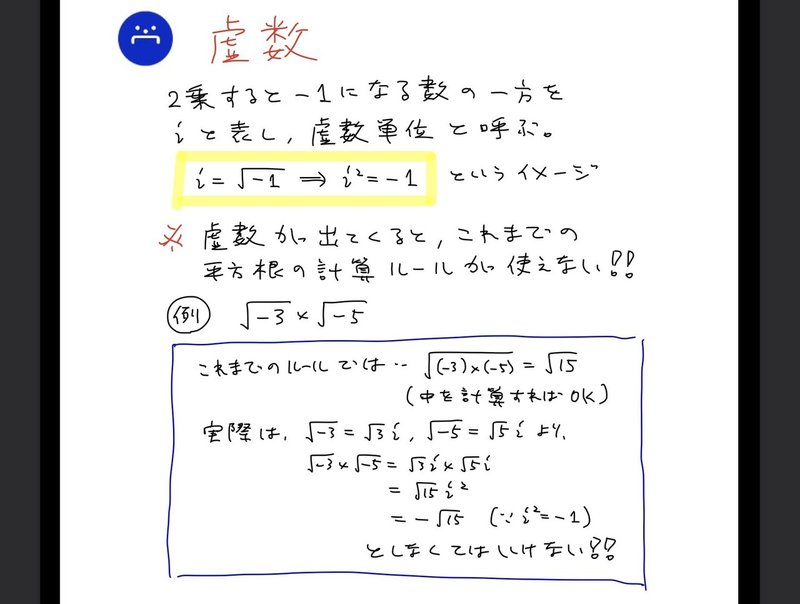 虚数
2乗すると-1になる数の一方を
iと表し,虚数単位と呼ぶ。
i=√-1 ⇒ i²=-1 というイメージ
※ 虚数が出てくると,これまでの
平方根の計算ルールが使えない!!
例 √-3×√-5
これまでのルールでは‥ √(-3)×(-5)=√15
(中を計算すればOK)
実際は、√-3=√3i,√-5=√5iより、
√-3×√-5=√3i×√5i
=√15i²
=-√15 (∵i²=-1)
としなくてはいけない!!